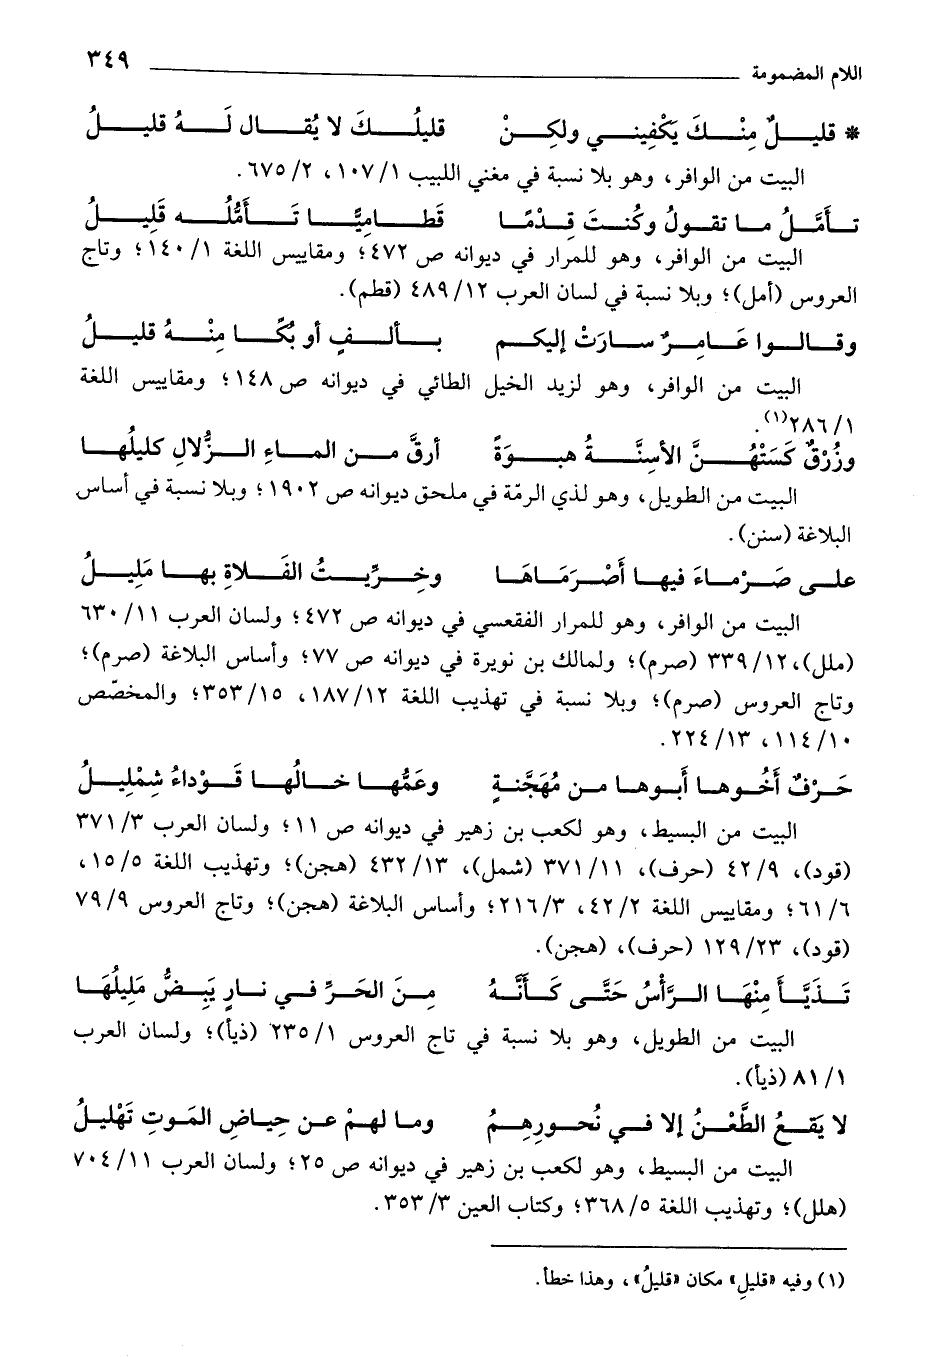 اللام المضمومة ٣٤٩
* قليلٌ مِنْكَ يَكْفِيني ولكِنْ قليلُكَ لا يُقال لَهُ قليلُ
البيت من الوافر، وهو بلا نسبة في مغني اللبيب ١/ ١٠٧، ٢/ ٦٧٥.
تأمَّلُ ما تقولُ وكُنتَ قِدْمًا قَطاميًّا تَأَمُّلُه قَلِيلُ
البيت من الوافر، وهو للمرار في ديوانه ص ٤٧٢؛ ومقاييس اللغة ١/ ١٤٠؛ وتاج
العروس (أمل)؛ وبلا نسبة في لسان العرب ١٢/ ٤٨٩ (قطم).
وقالوا عَامِرٌ سارَتْ إليكم بألفٍ أو بُكًا مِنْهُ قليلُ
البيت من الوافر، وهو لزيد الخيل الطائي في ديوانه ص ١٤٨؛ ومقاييس اللغة
١/ ٢٨٦(١).
وزُرْقٌ كَسَتْهُنَّ الأسِنَّةُ هبوَةً أرقَّ من الماءِ الزُّلالِ كليلُها
البيت من الطويل، وهو لذي الرمّة في ملحق ديوانه ص ١٩٠٢؛ وبلا نسبة في أساس
البلاغة (سنن).
على صَرْماءَ فيها أَصْرَمَاهَا وخِرِّيتُ الفَلاةِ بها مَلِيلُ
البيت من الوافر، وهو للمرار الفقعسي في ديوانه ص ٤٧٢؛ ولسان العرب ١١/ ٦٣٠
(ملل)، ١٢/ ٣٣٩ (صرم)؛ ولمالك بن نويرة في ديوانه ص ٧٧؛ وأساس البلاغة (صرم)؛
وتاج العروس (صرم)؛ وبلا نسبة في تهذيب اللغة ١٢/ ١٨٧، ١٥/ ٣٥٣؛ والمخصّص
١٠/ ١١٤، ١٣/ ٢٢٤.
حَرْفٌ أَخُوها أَبوها من مُهَجَّنةٍ وعَمُّها خالُها قَوْداءُ شِمْليلُ
البيت من البسيط، وهو لكعب بن زهير في ديوانه ص ١١؛ ولسان العرب ٣/ ٣٧١
(قود)، ٩/ ٤٢ (حرف)، ١١/ ٣٧١ (شمل)، ١٣/ ٤٣٢ (هجن)؛ وتهذيب اللغة ٥/ ١٥،
٦/ ٦١؛ ومقاييس اللغة ٢/ ٤٢، ٣/ ٢١٦؛ وأساس البلاغة (هجن)؛ وتاج العروس ٩/ ٧٩
(قود)، ٢٣/ ١٢٩ (حرف)، (هجن).
تَذَيَّأَ مِنْهَا الرَّأْسُ حَتَّى كَأَنَّهُ مِنَ الحَرِّ في نارٍ يَبِضُّ مَلِيلُهَا
البيت من الطويل، وهو بلا نسبة في تاج العروس ١/ ٢٣٥ (ذيأ)؛ ولسان العرب
١/ ٨١ (ذيأ).
لا يَقعُ الطَّعْنُ إلا في نُحورِهِمُ وما لهمْ عن حِياضِ المَوتِ تَهْليلُ
البيت من البسيط، وهو لكعب بن زهير في ديوانه ص ٢٥؛ ولسان العرب ١١/ ٧٠٤
(هلل)؛ وتهذيب اللغة ٥/ ٣٦٨؛ وكتاب العين ٣/ ٣٥٣.
(١) وفيه «قليلِ» مكان «قليلُ»، وهذا خطأ.